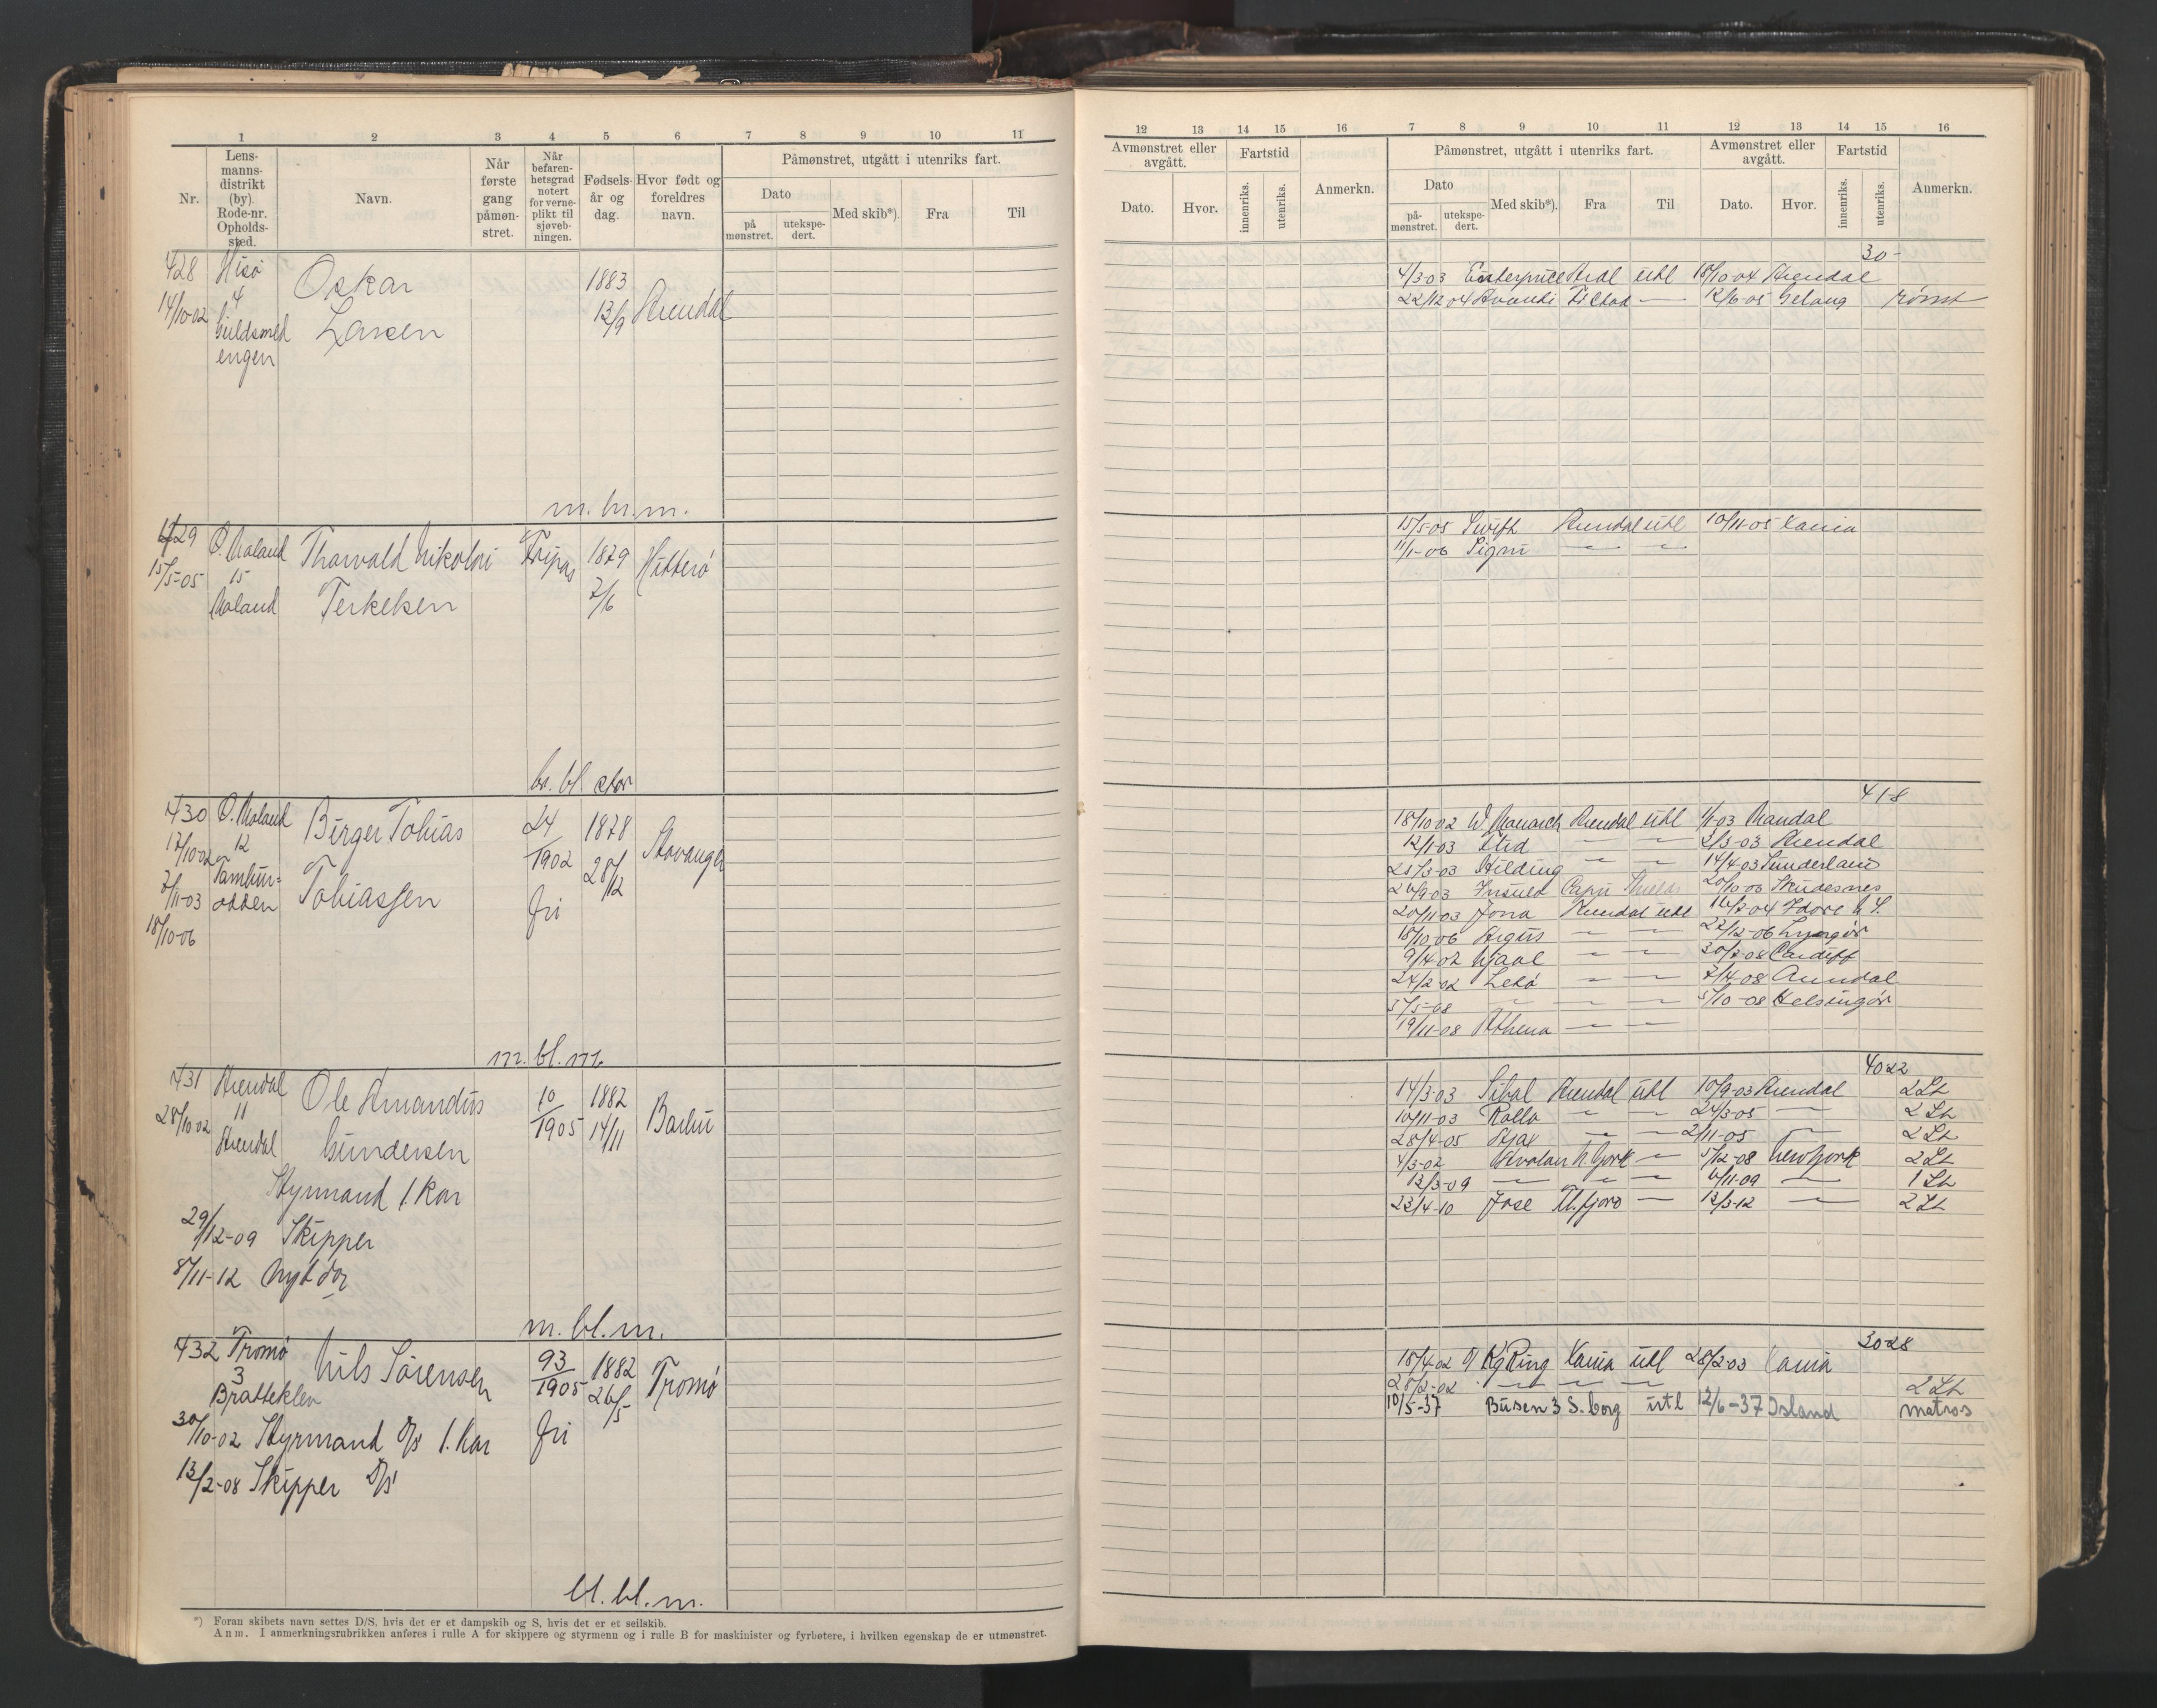 1 2 3 4 5 6 7 8 9 10 11
Nr.
Lens-
manns-
distrikt
(by).
Rode-nr.
Opholds-
sted.
Navn.
Når
første
gang
påmøn-
stret.
Når
befaren-
hetsgrad
notert
for verne-
plikt til
sjøveb-
ningen.
Fødsels-
år og
dag.
Hvor født og
foreldres
navn.
Påmønstret, utgått i utenriks fart.
Dato
på
mønstret.
utekspe-
dert.
Med skib*).
Fra
Til
428 Hisø Oskar 1883
14/10-02 4 Larsen 13/9 Arendal
Guldsmed
engen
m. bl. m.
429 Ø. Moland Thorvald Nikolai Fripas 1879 Hitterø
15/5-05 15 Terkelsen 7/6
Moland
br. bl. stor
430 Ø. Moland Birger Tobias 24 1878 Stavanger
17/10-02 12 Tobiassen 1902 28/12
7/11-03 odden fri
18/10-06
m. bl. m.
431 Arendal Ole Amandus 10 1882 Barbu
28/10 02 11 Gundersen 1905 14/11
Arendal
Styrmand 1. Kar
29/12-09 Skipper
8/11-12
m. bl. m.
432 Tromø Nils Sørensen 93 1882 Tromø
3 1905 26/5
Bratteklev
30/10-02 Styrmand D/S 1. Kar fri
13/2-08 Skipper D/S
bl. bl. m.
*) Foran skibets navn settes D/S, hvis det er et dampskib og S, hvis det er et seilskib.
Anm. I anmerkningsrubrikken anføres i rulle A for skippere og styrmenn og i rulle B for maskinister og fyrbøtere, i hvilken egenskap de er utmønstret.
12 13 14 15 16 7 8 9 10 11 12 13 14 15 16
Avmønstret eller
avgått.
Dato.
Hvor.
Fartstid
innenriks.
utenriks.
Anmerkn.
Påmønstret, utgått i utenriks fart.
Dato
på-
mønstret.
utekspe-
dert.
Med skib*).
Fra
Til
Avmønstret eller
avgått.
Dato.
Hvor.
Fartstid
innenriks.
utenriks.
Anmerkn.
30-
4/3-03 Enterprice Ardal utl 18/10 04 Arendal
22/12 04 — 12/6-05 rømt
15/5-05 Swift Arendal utl 10/11-05 Xania
11/1-06 Signi — —
41-8
18/10 02 W. Monarch Arendal utl 1/1-03 Mandal
12/1-03 — — 2/3-03 Arendal
25/3-03 Hilding — — 14/4-03 Sunderland
26/9-03 20/10-03 Skudesnes
20/11-03 Jona Arendal utl 16/2-04
18/10 06 Argus — — 22/12-06 Lyngør
9/4-07 — — 30/7-08 Cardiff
— — 7/4-08 Arendal
5/5-08 — — — 5/10-08 Helsingør
19/11-08 Athena — —
40 22
14/3-03 Sibal Arendal utl 10/9-03 Arendal 2 St
10/11-03 Rollo — — 24/3-05 — 2 St
28/4-05 Ajax — — 2/11-05 — 2 St
N. York — 5/12-08 New York 2 St
12/3-09 — — — 6/11-09 — 1 St
23/4-10 Jose — 12/3-12 — 2 St
30-28
Kg Ring Xania utl 28/2-03 Xania
— — — 2 St
10/5-37 Busen 3 S. borg utl 12/6-37 Island matros